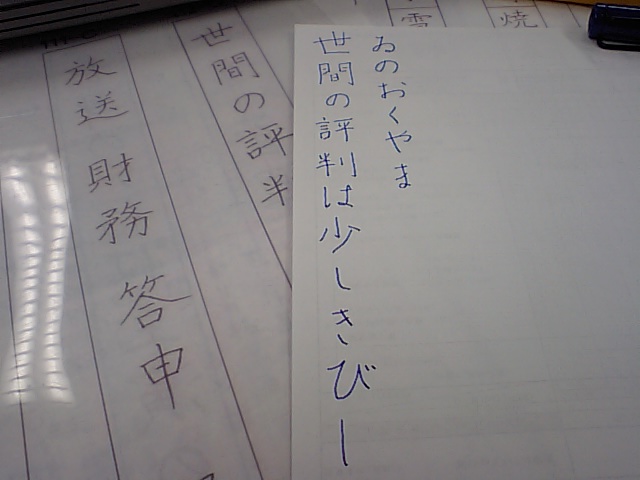 ゐのおくやま
世間の評判は少しきびー
焼
雪
世間の評半
放送 財務 答申